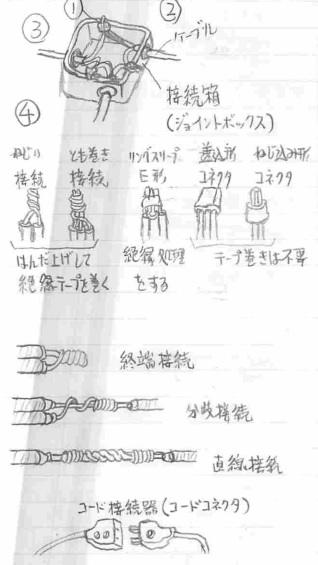 ①
②
③
ケーブル
接続箱
(ジョイントボックス)
④
ねじり
接続
とも巻き
接続
リングスリーブ
E形
差込形
コネクタ
ねじ込み形
コネクタ
はんだ上げして
絶縁テープを巻く
絶縁処理
をする
テープ巻きは不要
終端接続
分岐接続
直線接続
コード接続器(コードコネクタ)